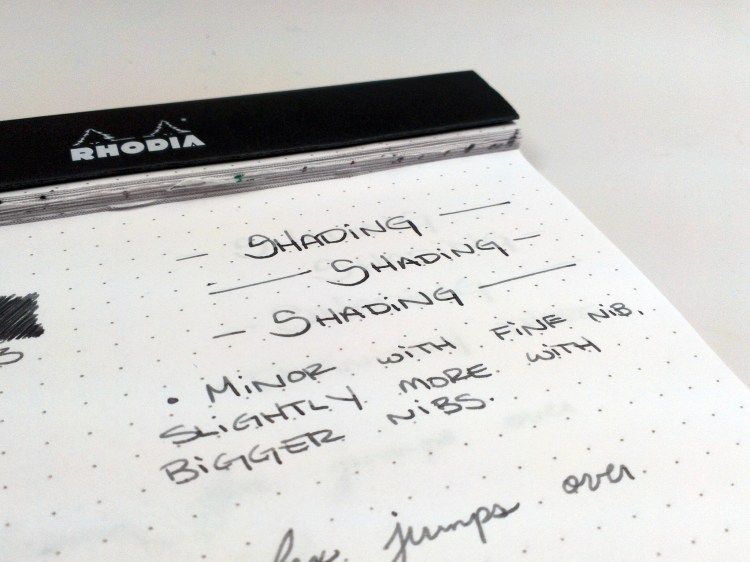 RHODIA
— SHADiNG —
— SHADiNG —
— SHADiNG —
• MiNOR WiTH FiNE NiB,
SLiGHTLY MORE WiTH
BiGGER NiBS.
fox jumps over